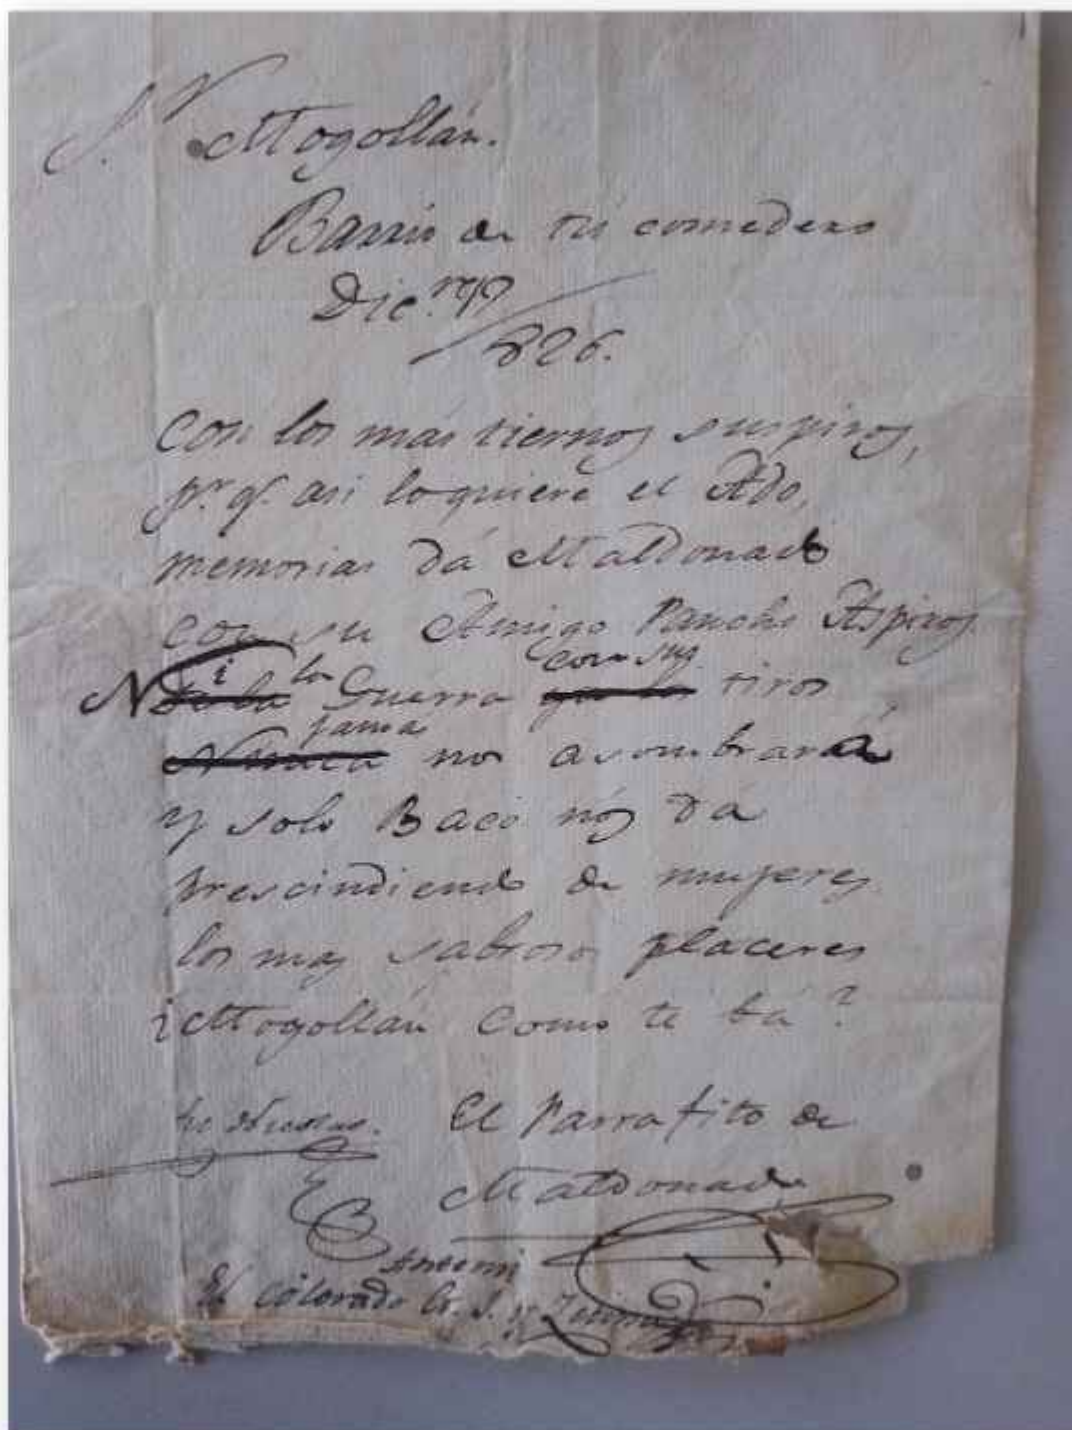 S.r Mogollán.
Barrio de tú comedero
Dic.re
/826.
Con los más tiernos suspiros,
pr. q. asi lo quiere el Ado,
memorias dá Maldonado
con su Amigo Pancho Aspiros
i la com sus
N Guerra tiros
jamas
Nunca nos asombrará
y solo Baco nos da
prescindiendo de mujeres
los mas sabrosos placeres
¿Mogollán como te bá?
El Parrafito de
Maldonado
El colorado